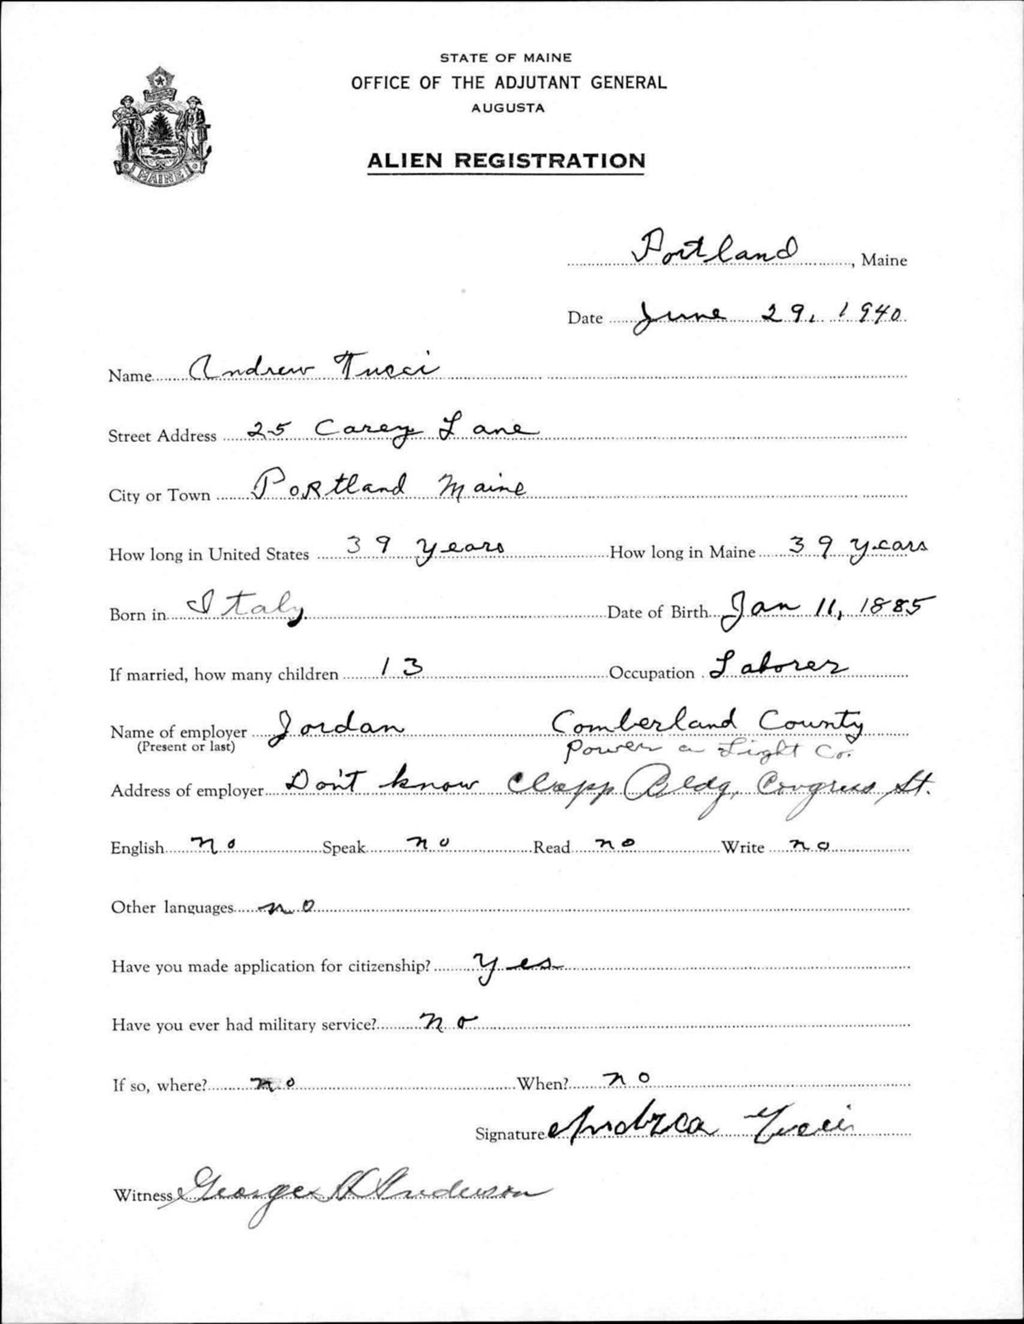 STATE OF MAINE
OFFICE OF THE ADJUTANT GENERAL
AUGUSTA
ALIEN REGISTRATION
MAINE
Portland, Maine
Date June 29, 1940
Name Andrew Tucci
Street Address 25 Carey Lane
City or Town Portland Maine
How long in United States 39 years How long in Maine 39 years
Born in Italy Date of Birth Jan 11, 1885
If married, how many children 13 Occupation Laborer
Name of employer Jordan Comberland County
(Present or last) Power a Light Co.
Address of employer Don't know Clapp Bldg, Congress St.
English no Speak no Read no Write no
Other languages no
Have you made application for citizenship? Yes
Have you ever had military service? no
If so, where? no When? no
Signature Andrea Tucci
Witness George H Anderson